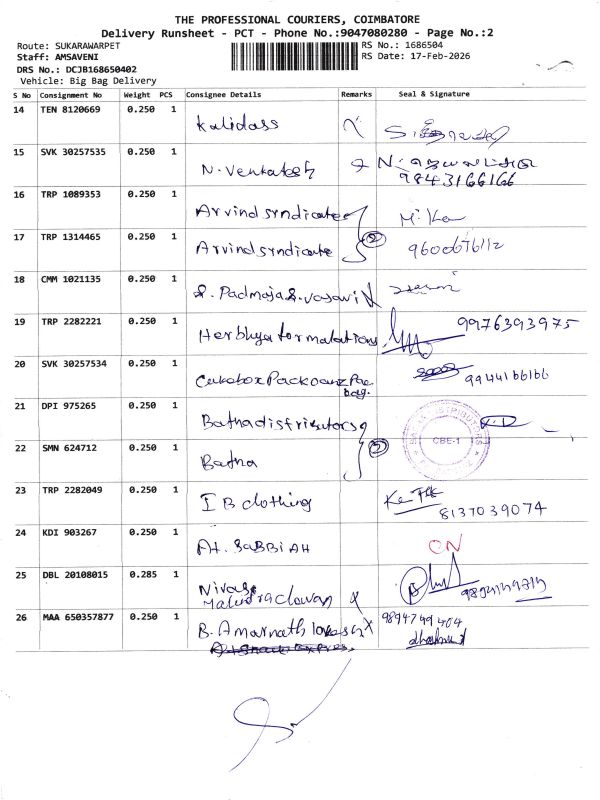 THE PROFESSIONAL COURIERS, COIMBATORE
Delivery Runsheet - PCT - Phone No.:9047080280 - Page No.:2
Route: SUKARAWARPET
RS No.: 1686504
Staff: AMSAVENI
RS Date: 17-Feb-2026
DRS No.: DCJB168650402
Vehicle: Big Bag Delivery
S No Consignment No Weight PCS Consignee Details Remarks Seal & Signature
14 TEN 8120669 0.250 1 Kalidass
15 SVK 30257535 0.250 1 N. Venkatesh 9843166166
16 TRP 1089353 0.250 1 Arvind syndicate
17 TRP 1314465 0.250 1 Arvind syndicate 2 9600676112
18 CMM 1021135 0.250 1 S. Padmaja S. vasavi
19 TRP 2282221 0.250 1 Herbhya formalations 9976393975
20 SVK 30257534 0.250 1 9944166166
21 DPI 975265 0.250 1 Bathadistributors
22 SMN 624712 0.250 1 Batna 2 CBE-1
23 TRP 2282049 0.250 1 I B clothing 8137039074
24 KDI 903267 0.250 1 At. SABBIAH CN
25 DBL 20108015 0.285 1 Nivas
26 MAA 650357877 0.250 1 B. Amarnath 9894749404